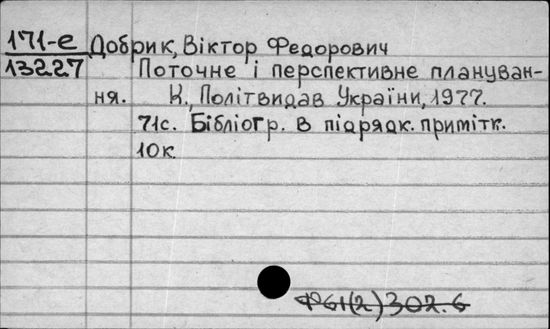 171-е Добрик, Віктор Федорович
13227 Поточне і перспективне плануван-
ня. К., Політвидав України, 1977.
71с. Бібліогр. в підрядк. примітк.
10к
Ф61(2)302.6